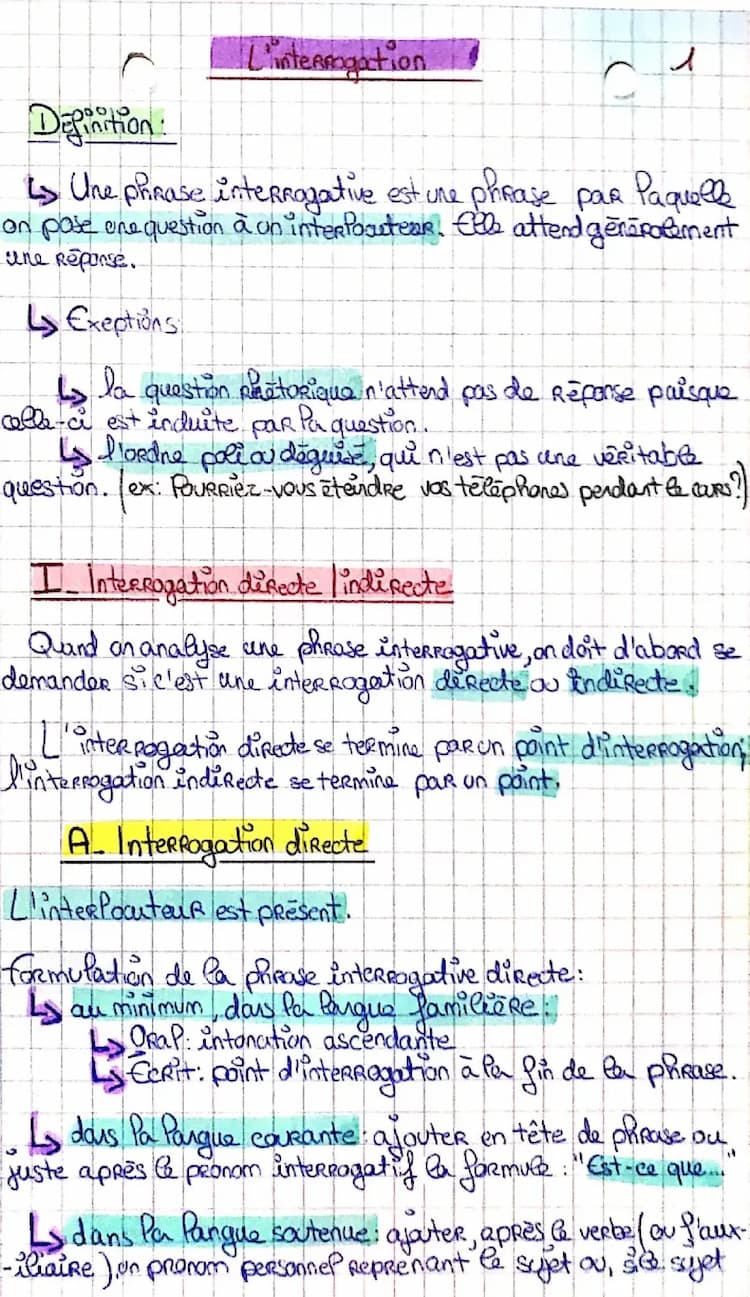 L'interrogation
1
Définition:
↳ Une phrase interrogative est une phrase par laquelle
on pose une question à un interlocuteur. Elle attend généralement
une réponse.
↳ Exeptions:
↳ la question rhétorique n'attend pas de réponse puisque
celle-ci est induite par la question.
↳ l'ordre poli ou déguisé, qui n'est pas une véritable
question. (ex: Pourriez-vous éteindre vos téléphones pendant le cours?)
I_ Interrogation directe / indirecte
Quand on analyse une phrase interrogative, on doit d'abord se
demander si c'est une interrogation directe ou indirecte.
L'interrogation directe se termine par un point d'interrogation;
l'interrogation indirecte se termine par un point.
A_ Interrogation directe
L'interlocuteur est présent.
formulation de la phrase interrogative directe:
↳ au minimum, dans la langue familière:
↳ Oral: intonation ascendante
↳ Écrit: point d'interrogation à la fin de la phrase.
↳ dans la langue courante: ajouter en tête de phrase ou
juste après le pronom interrogatif la formule: "Est-ce que..."
↳ dans la langue soutenue: ajouter, après le verbe (ou l'aux-
-iliaire), un pronom personnel reprenant le sujet ou, si le sujet